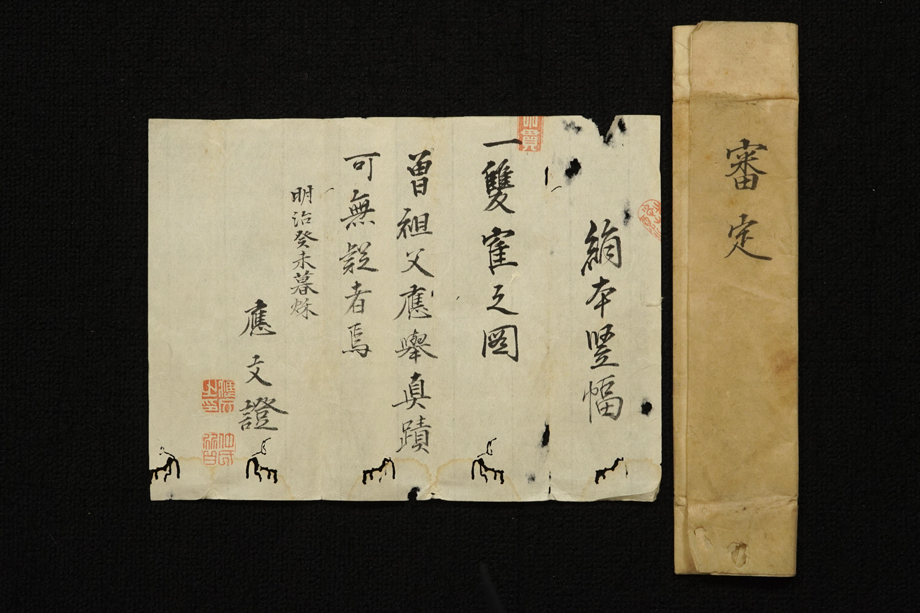 審定
絹本竪幅
一雙寉之圖
曽祖父應舉真蹟
可無疑者焉
明治癸未暮秌
應文證